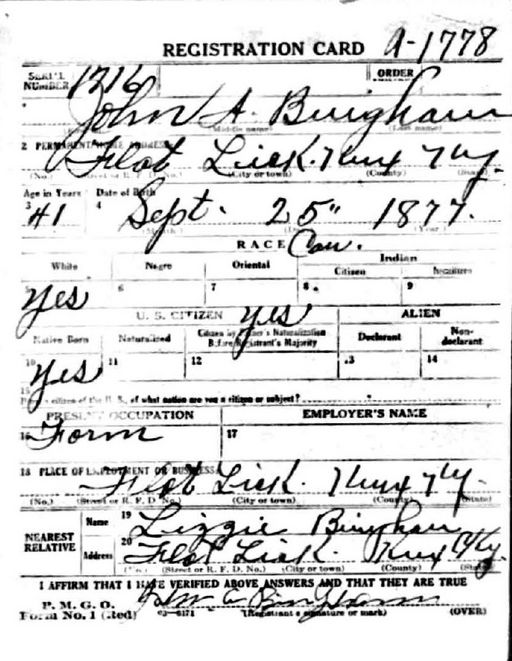 REGISTRATION CARD A-1778
SERIAL NUMBER 1216 ORDER
John A. Bingham
(Middle name) (Last name)
2 PERMANENT HOME ADDRESS
Flat Lick. Knx Ky.
(No.) (Street or R. F. D. No.) (City or town) (County) (State)
Age in Years Date of Birth
3 41 4 Sept. 25" 1877.
(Month) (Day) (Year)
RACE Cau.
White Negro Oriental Indian
Citizen Noncitizen
Yes 6 7 8 9
U. S. CITIZEN Yes ALIEN
Native Born Naturalized Citizen by Father's Naturalization Before Registrant's Majority Declarant Non-declarant
10 Yes 11 12 13 14
15
citizen of the U. S., of what nation are you a citizen or subject?
PRESENT OCCUPATION EMPLOYER'S NAME
16 Form 17
18 PLACE OF EMPLOYMENT OR BUSINESS
Flat Lick. Knx Ky.
(No.) (Street or R. F. D. No.) (City or town) (County) (State)
NEAREST RELATIVE Name 19 Lizzie Bingham
Address 20 Flat Lick. Knx Ky.
(No.) (Street or R. F. D. No.) (City or town) (County) (State)
I AFFIRM THAT I HAVE VERIFIED ABOVE ANSWERS AND THAT THEY ARE TRUE
P. M. G. O.
Form No. 1 (Red) 03-6171 (Registrant's signature or mark) (OVER)
John A Bingham